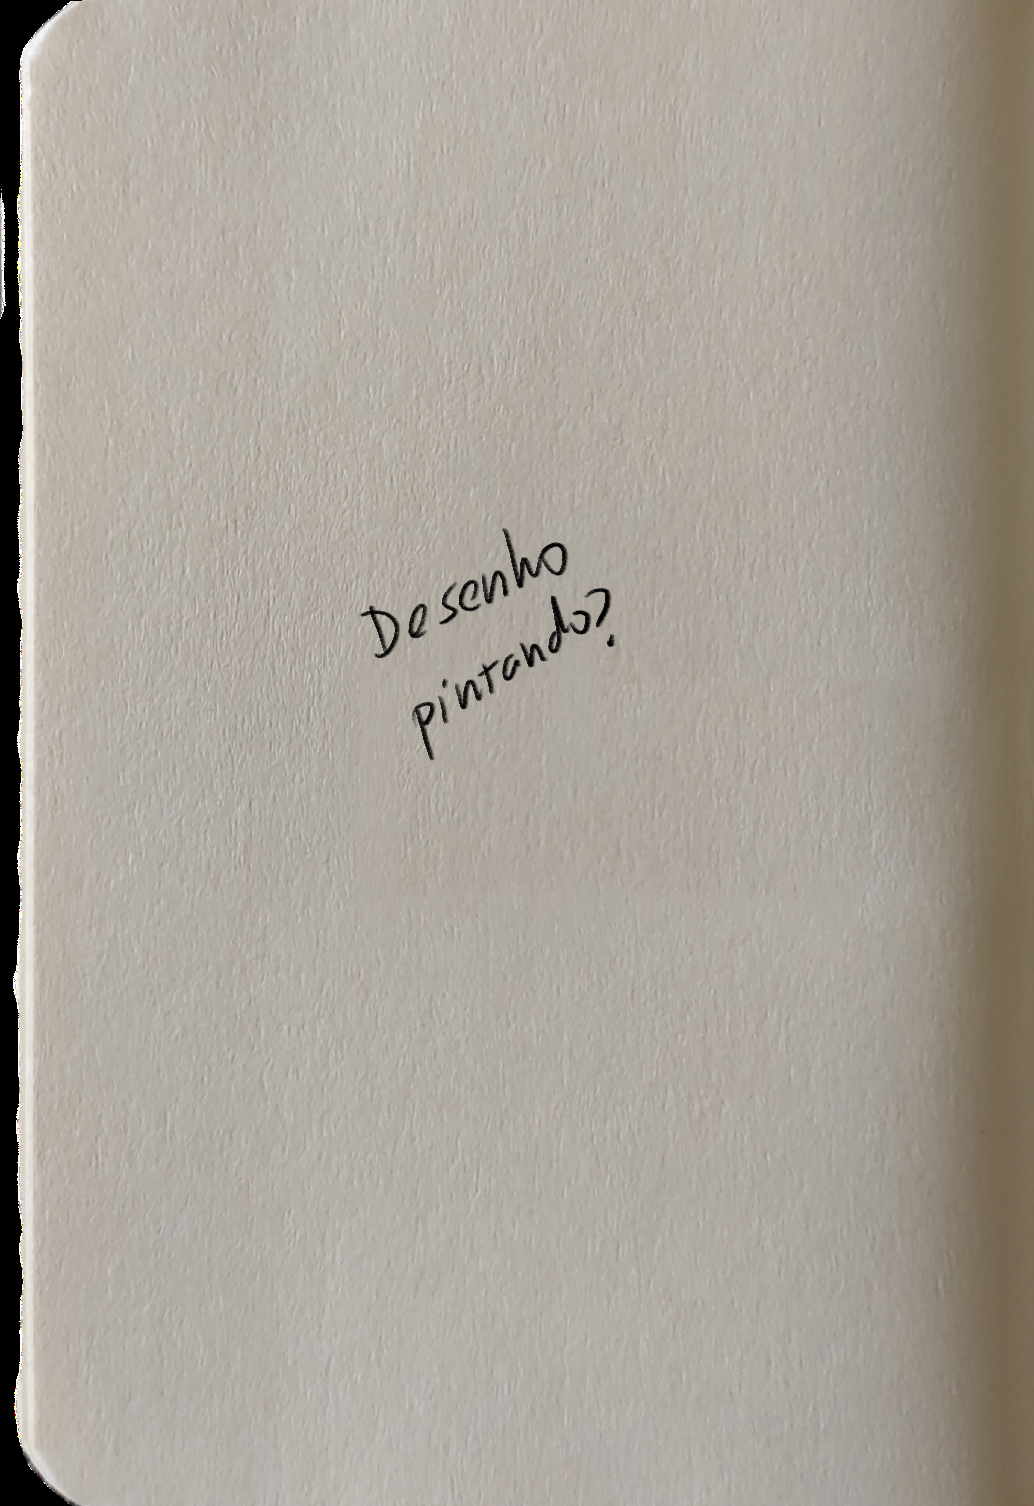 Desenho
pintando?